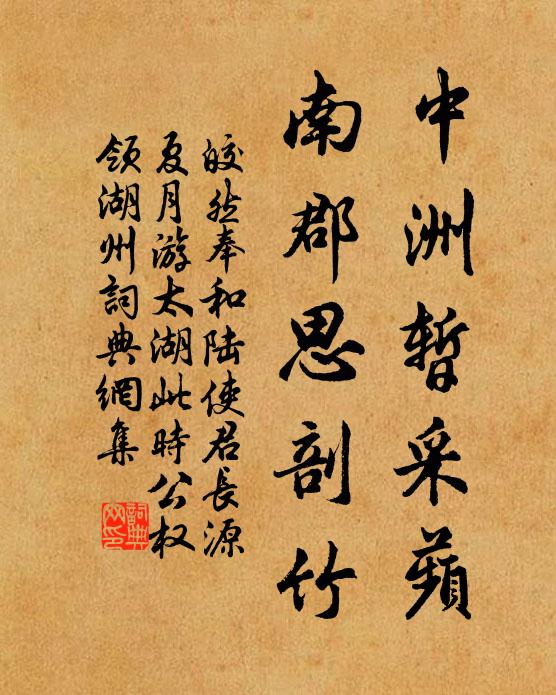 中洲暫采蘋
南郡思剖竹
皎然奉和陸使君長源
夏月游太湖此時公权
領湖州詞典網集
詞典
网印